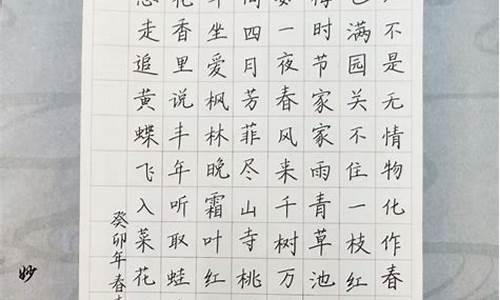 不是无情物化作春
色满园关不住一枝红
梅时节家家雨青草池
如一夜春风来千树万
间四月芳菲尽山寺桃
车坐爱枫林晚霜叶红
花香里说丰年听取蛙
急走追黄蝶飞入菜花
癸卯年春
妙